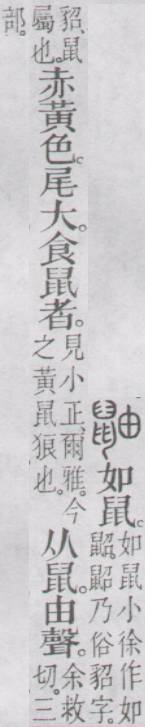 鼬如鼠。如鼠小徐作如鼦鼦乃俗貂字。
貂、鼠屬也。赤黃色。尾大。食鼠者。見小正、爾雅。今之黃鼠狼也。从鼠。由聲。余救切。三
部。